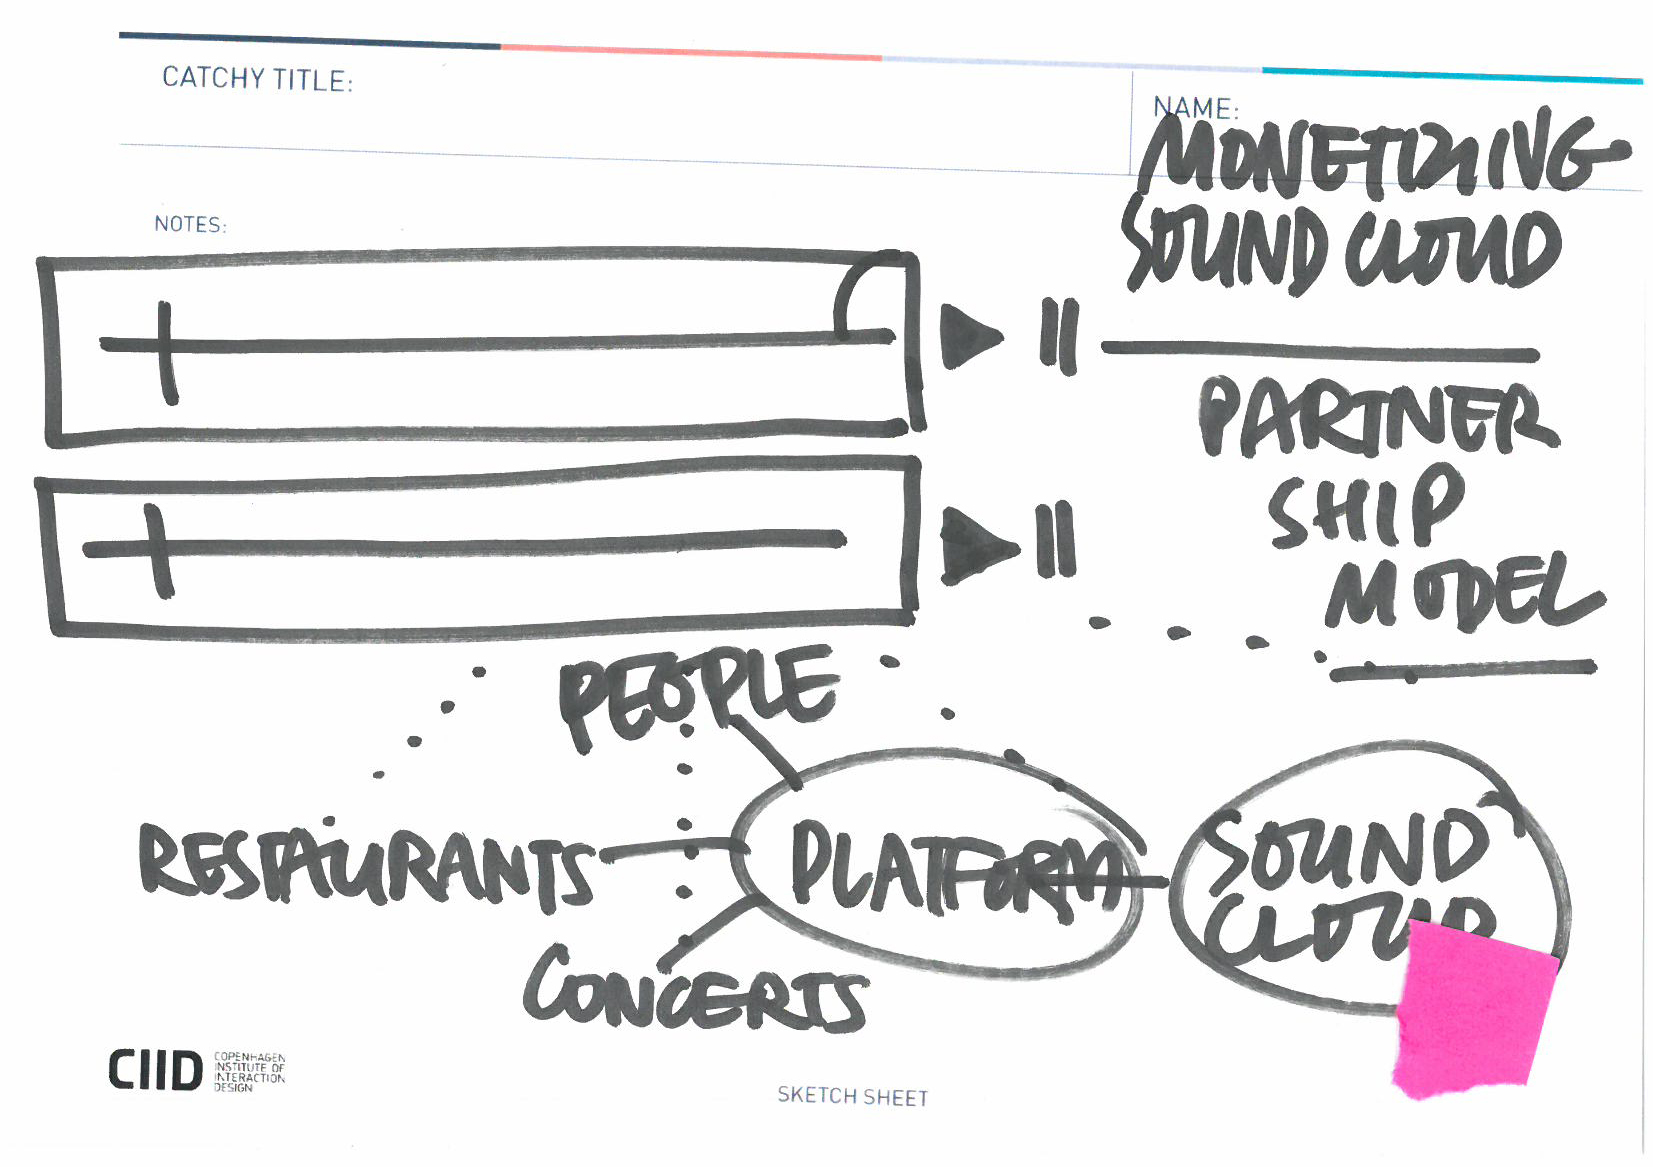 CATCHY TITLE:
NAME:
MONETIZING
SOUND CLOUD
NOTES:
PARTNER
SHIP
MODEL
PEOPLE
RESTAURANTS
PLATFORM
SOUND
CLOUD
CONCERTS
CIID
COPENHAGEN
INSTITUTE OF
INTERACTION
DESIGN
SKETCH SHEET